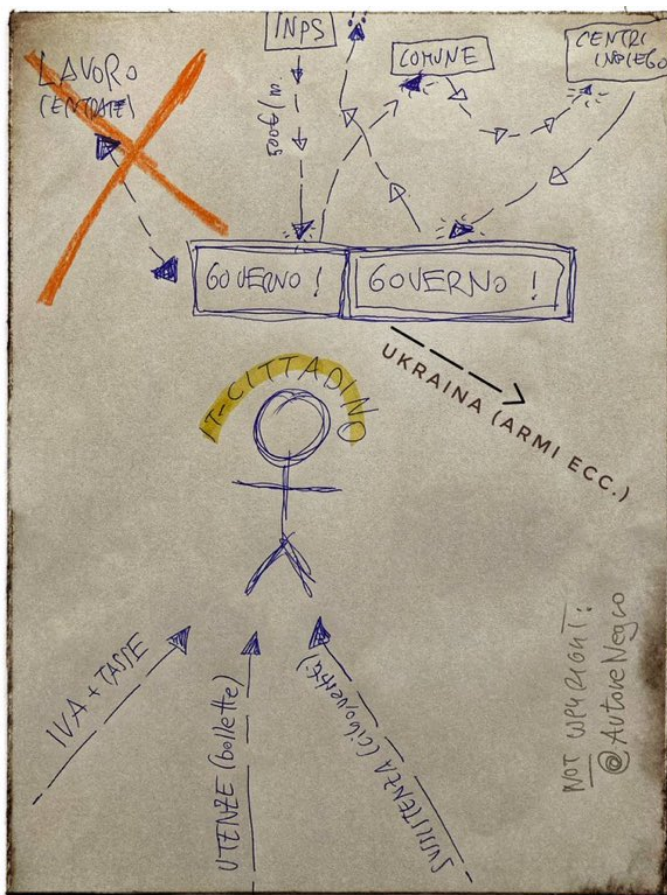 LAVORO
(ENTRATE)
INPS
500€/m
COMUNE
CENTRI
IMPIEGO
GOVERNO !
GOVERNO !
UKRAINA (ARMI ECC.)
IT-CITTADINO
IVA + TASSE
UTENZE (bollette)
SUSSISTENZA (cibo, vestiti)
NOT COPYRIGHT:
@AutoreNegro